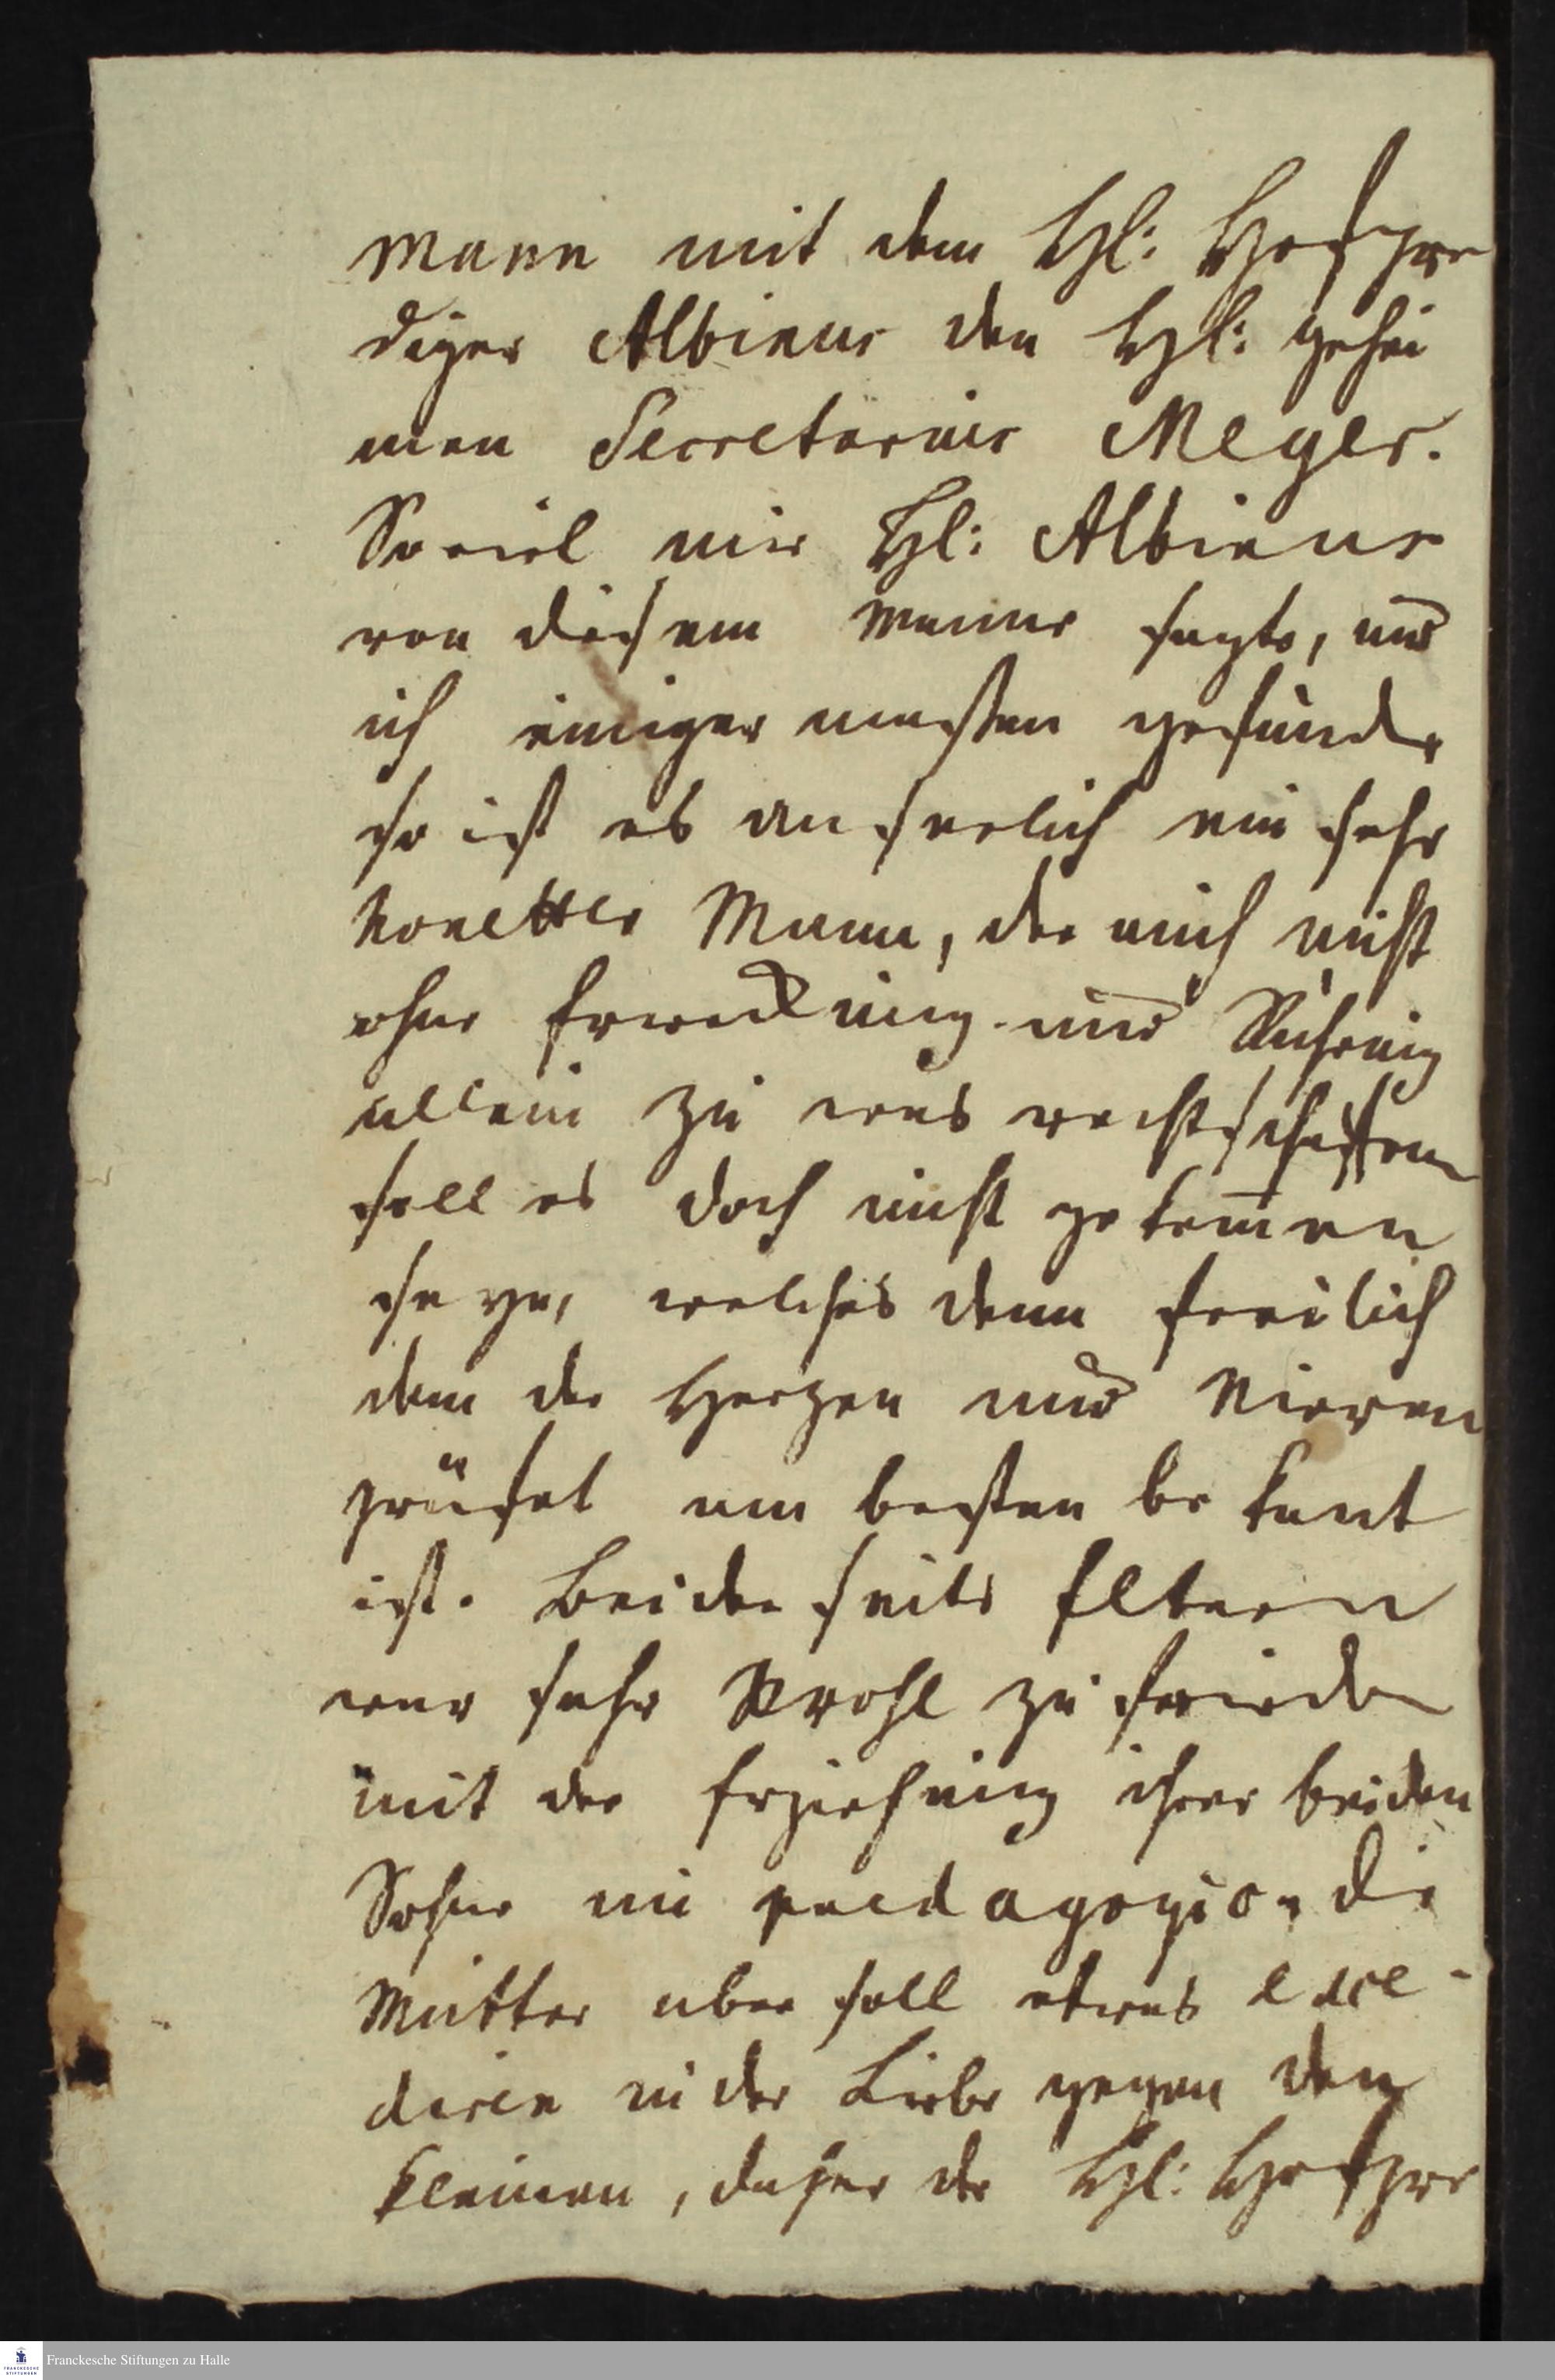 mann mit dem HE: Hofpre
diger Albinus den HE: gehei
men Secretarius Meyer.
So viel mir HE: Albinus
von diesem manne sagte, und
ich einiger massen gefunden
so ist es äuserlich ein sehr
honetter Mann, der auch nicht
ohne Erweckung und Rührung
allein zu was rechtschaffenen
soll es doch nicht gekomen
seyn, welches denn freilich
dem der Hertzen und Nieren
prüfet am besten bekant
ist. Beiderseits Eltern
war sehr wohl zu frieden
mit der Erziehung ihrer beiden
Söhne im paedagogio, die
Mutter aber soll etwas exce-
diren in der Liebe gegen den
kleinen, daher der HE: Hofpre
Franckesche Stiftungen zu Halle